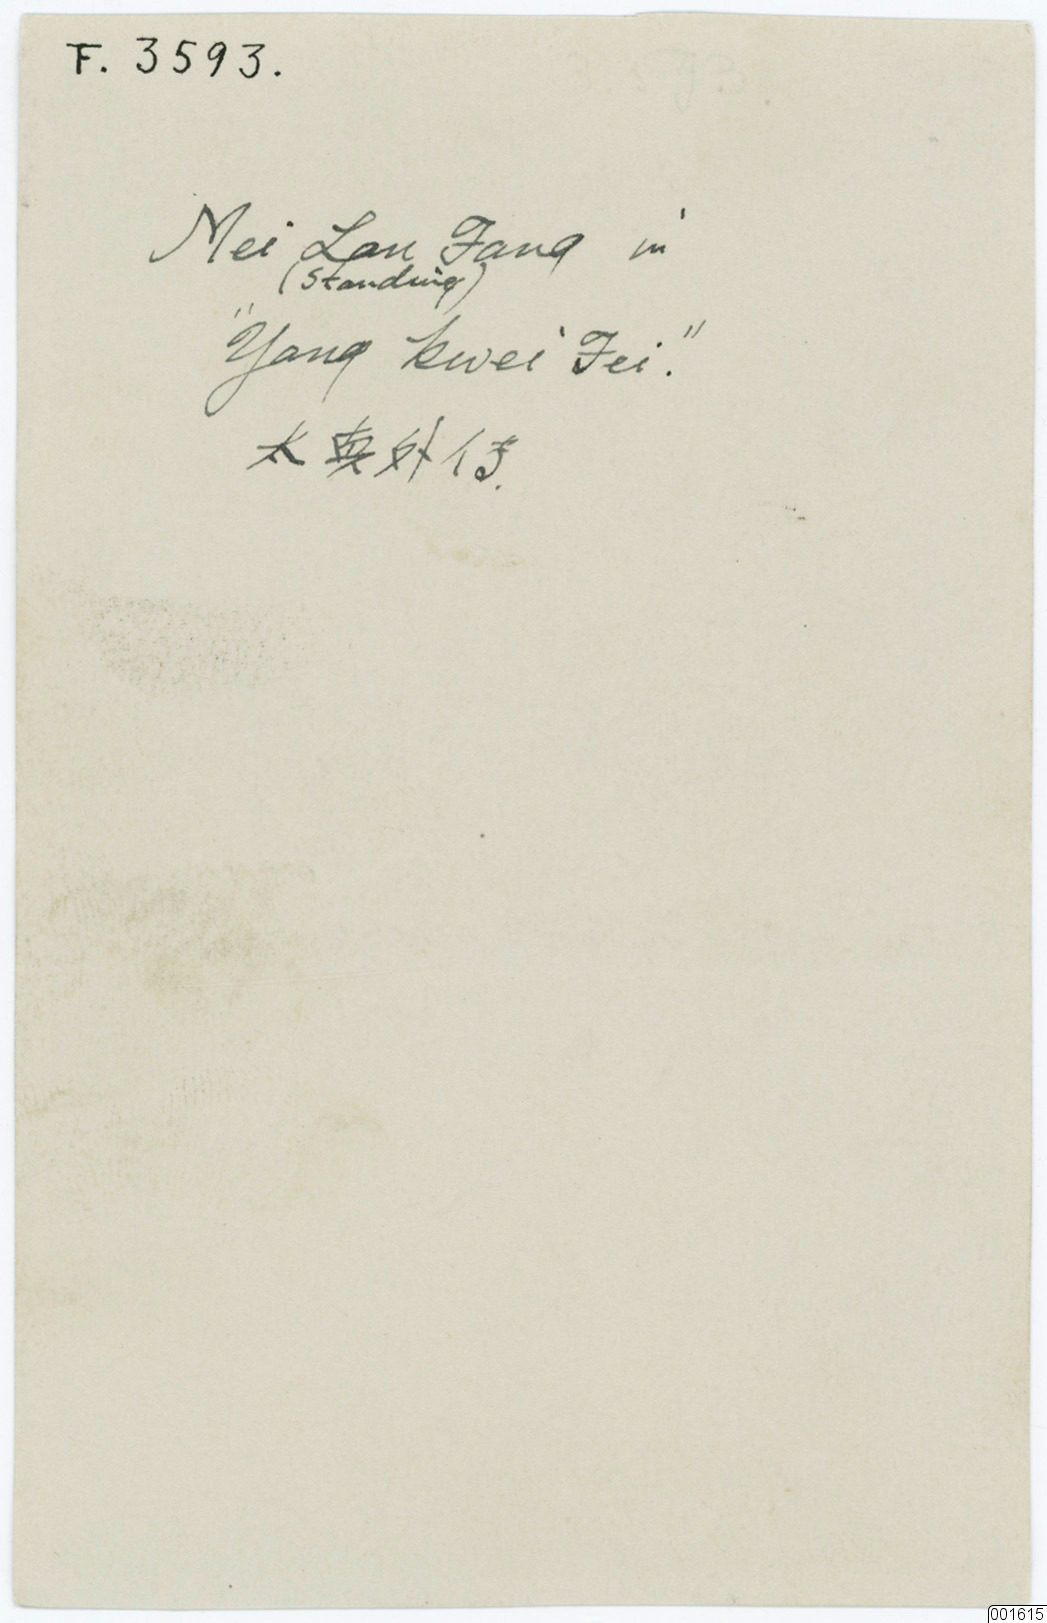 F. 3593.
Mei Lan Fang in
(Standing)
"Yang Kwei Fei."
太真外传.
001615